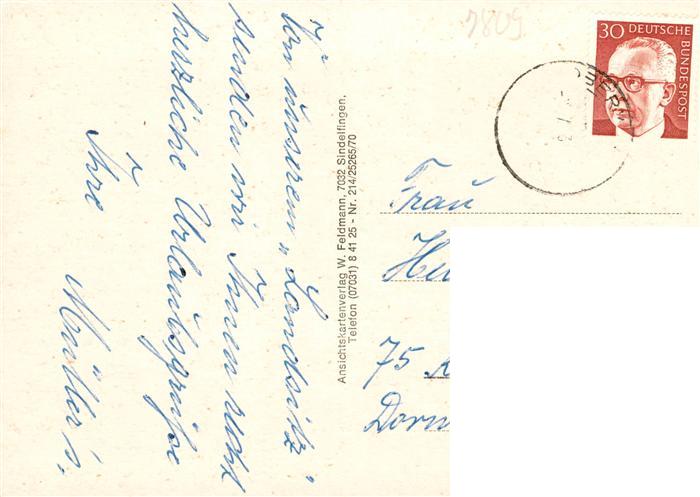 Von unserem „Landsitz"
senden wir Ihnen recht
herzliche Urlaubsgrüße
Ihre
Müller's.
Ansichtskartenverlag W. Feldmann, 7032 Sindelfingen,
Telefon (07031) 8 41 25 - Nr. 214/25265/70
7809
30 DEUTSCHE
BUNDESPOST
Frau
75